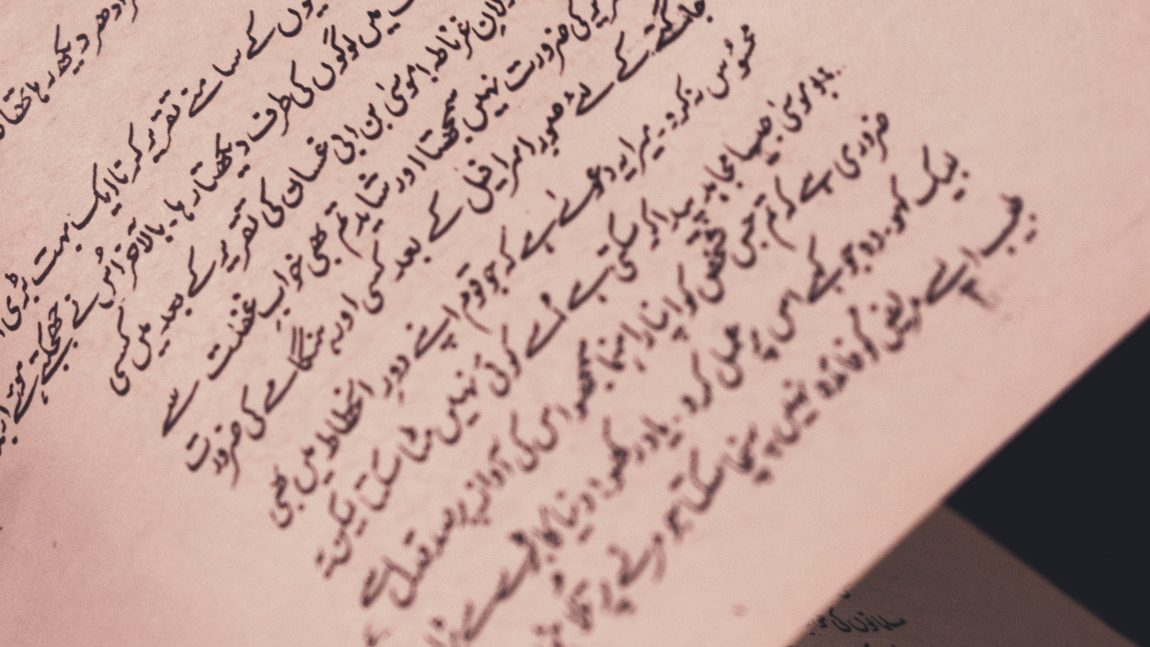 ادھر دیکھ رہا تھا
کے سامنے تقریر کرنا ایک بہت بڑی
میں لوگوں کی طرف دیکھتا رہا۔ بالآخر اُس نے جھجکتے ہوئے
غرناطہ! موسیٰ بن ابی غسان کی تقریر کے بعد میں کسی
کی ضرورت نہیں سمجھتا اور شاید تم بھی خوابِ غفلت سے
جاگنے کے لئے صورِ اسرافیل کے بعد کسی اور ہنگامے کی ضرورت
محسوس نہ کرو۔ میرا یہ دعوےٰ ہے کہ جو قوم اپنے دورِ انحطاط میں بھی
موسیٰ جیسا مجاہد پیدا کر سکتی ہے اُسے کوئی نہیں مٹا سکتا لیکن یہ
ضروری ہے کہ تم جس شخص کو اپنا راہنما سمجھو اس کی آواز پر صدقِ دل سے
لبیک کہو۔ وہ جو کہے اس پر عمل کرو۔ یاد رکھو! دنیا کا بڑے سے
طبیب اپنے مریض کو فائدہ نہیں پہنچا سکتا جو مرنے پر